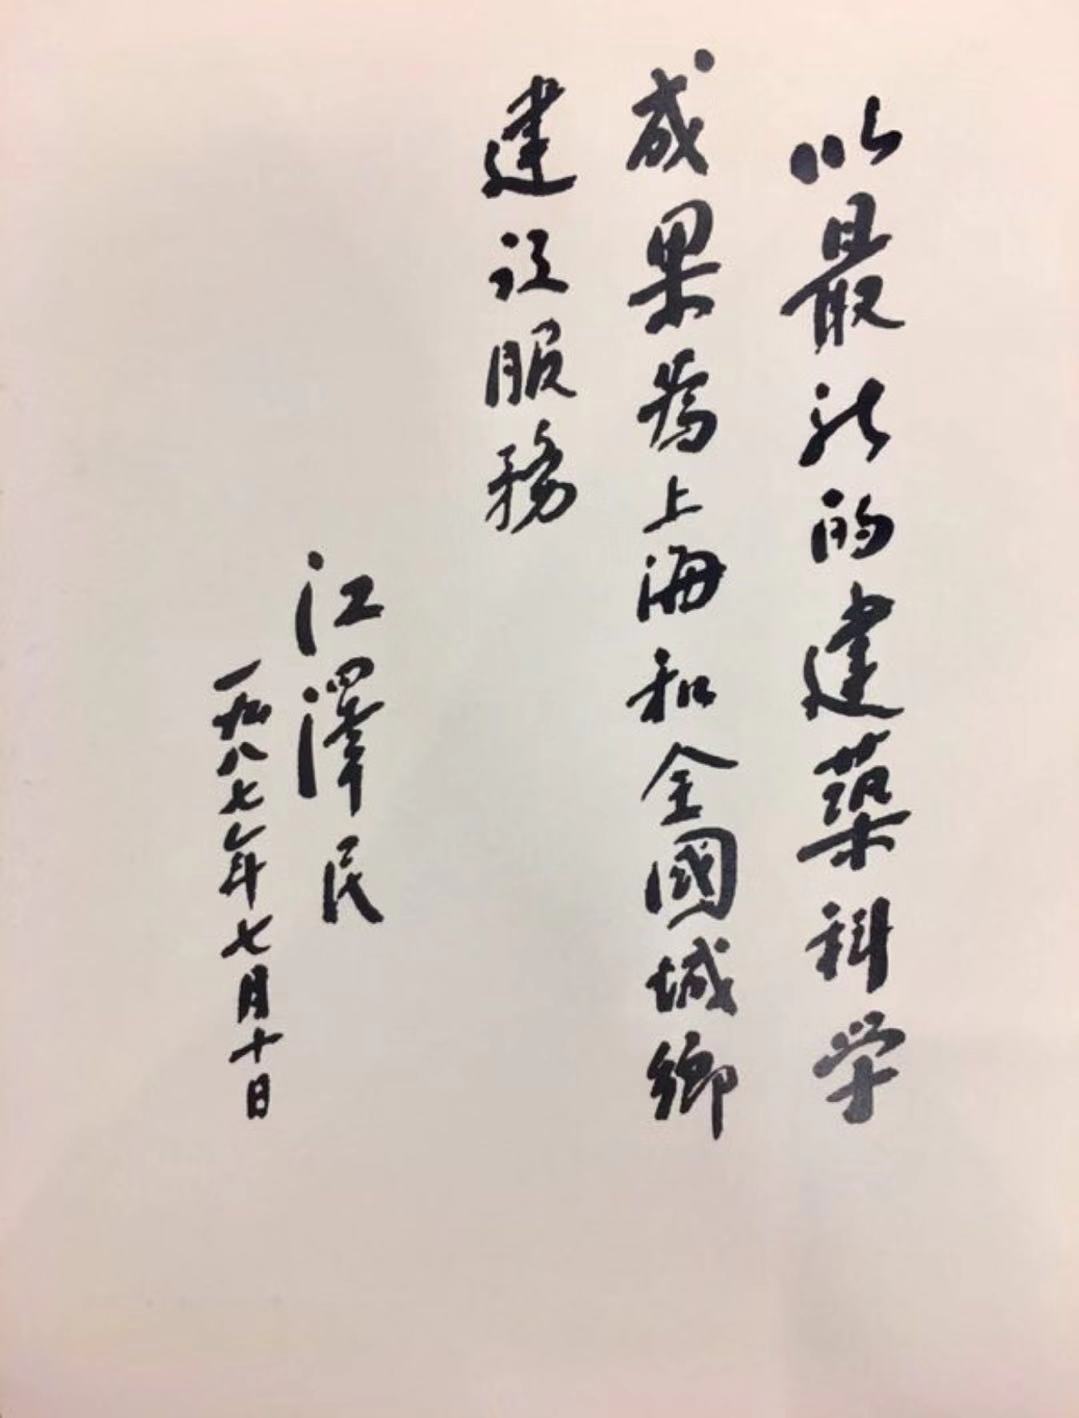 以最新的建築科学
成果為上海和全國城鄉
建设服務
江澤民
一九八七年七月十日